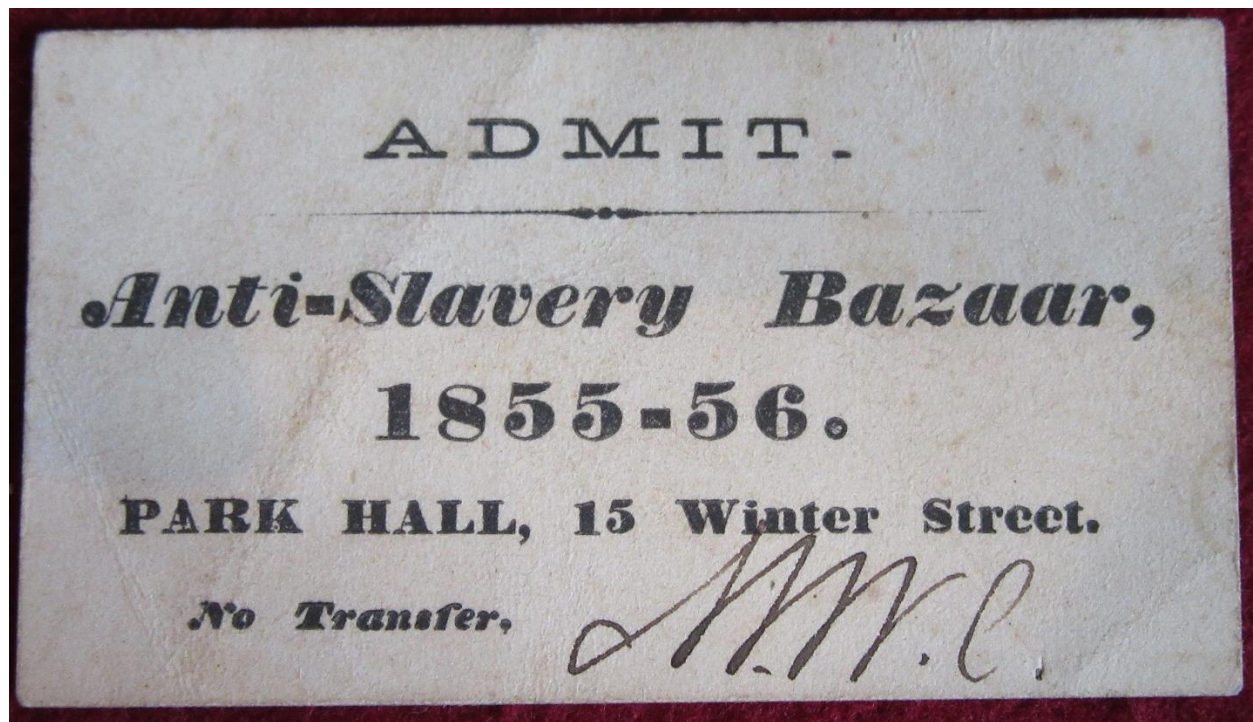 ADMIT.
Anti-Slavery Bazaar,
1855-56.
PARK HALL, 15 Winter Street.
No Transfer.
M.W.C.